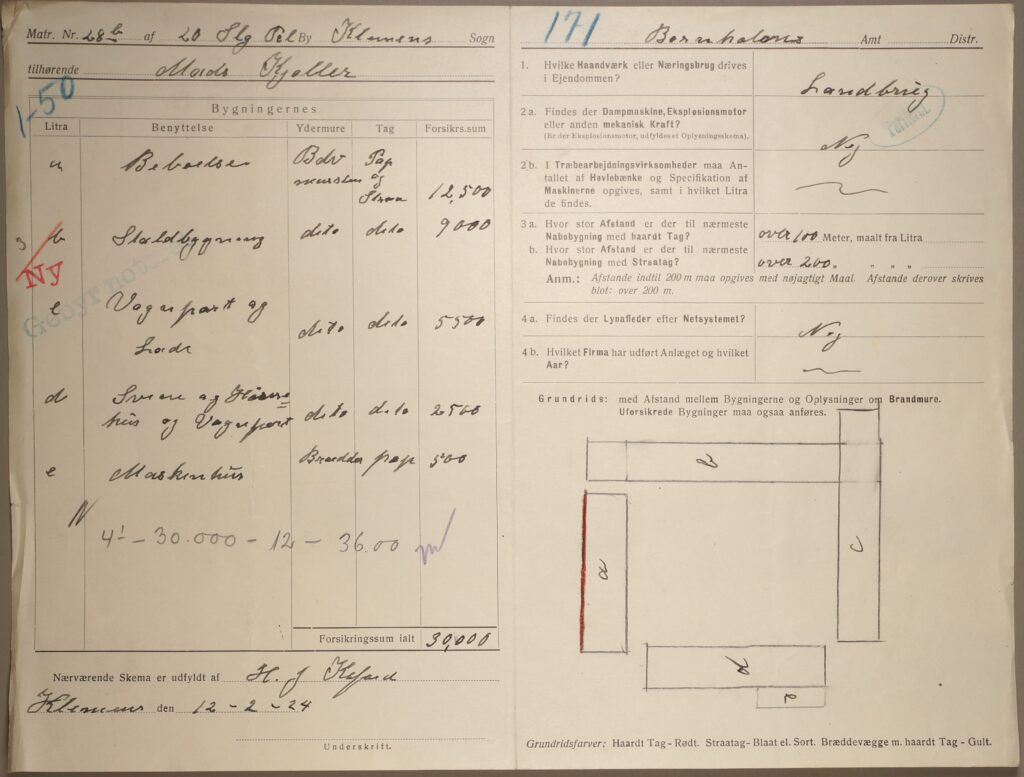 Matr. Nr. 28b af 20 Slg Pel By Klemens Sogn
tilhørende Mads Kjøller
1-50
Bygningernes
Litra Benyttelse Ydermure Tag Forsikrs.sum
a Beboelse Bdv Pap
og
Straa 12,500
3 b Staldbygning dito dito 9000
Ny
Gebyr
c Vognport og
Lade dito dito 5500
d Svine og Hønse
hus og Vognport dito dito 2500
e Maskenhus Brædder pap 500
4' - 30.000 - 12 - 36.00
Forsikringssum ialt 30,000
Nærværende Skema er udfyldt af H. J Kofoed
Klemens den 12-2-24
Underskrift.
171 Bornholms Amt Distr.
1. Hvilke Haandværk eller Næringsbrug drives
i Ejendommen? Landbrug
2a. Findes der Dampmaskine, Eksplosionsmotor
eller anden mekanisk Kraft?
(Er der Eksplosionsmotor, udfyldes et Oplysningsskema). Nej
2b. I Træbearbejdningsvirksomheder maa An-
tallet af Høvlebænke og Specifikation af
Maskinerne opgives, samt i hvilket Litra
de findes.
3a. Hvor stor Afstand er der til nærmeste
Nabobygning med haardt Tag? over 100 Meter, maalt fra Litra
b. Hvor stor Afstand er der til nærmeste
Nabobygning med Straatag? over 200 „ „ „ „
Anm.: Afstande indtil 200 m maa opgives med nøjagtigt Maal. Afstande derover skrives
blot: over 200 m.
4a. Findes der Lynafleder efter Netsystemet? Nej
4b. Hvilket Firma har udført Anlæget og hvilket
Aar?
Grundrids: med Afstand mellem Bygningerne og Oplysninger om Brandmure.
Uforsikrede Bygninger maa ogsaa anføres.
b
a
c
d
e
Grundridsfarver: Haardt Tag - Rødt. Straatag - Blaat el. Sort. Bræddevægge m. haardt Tag - Gult.